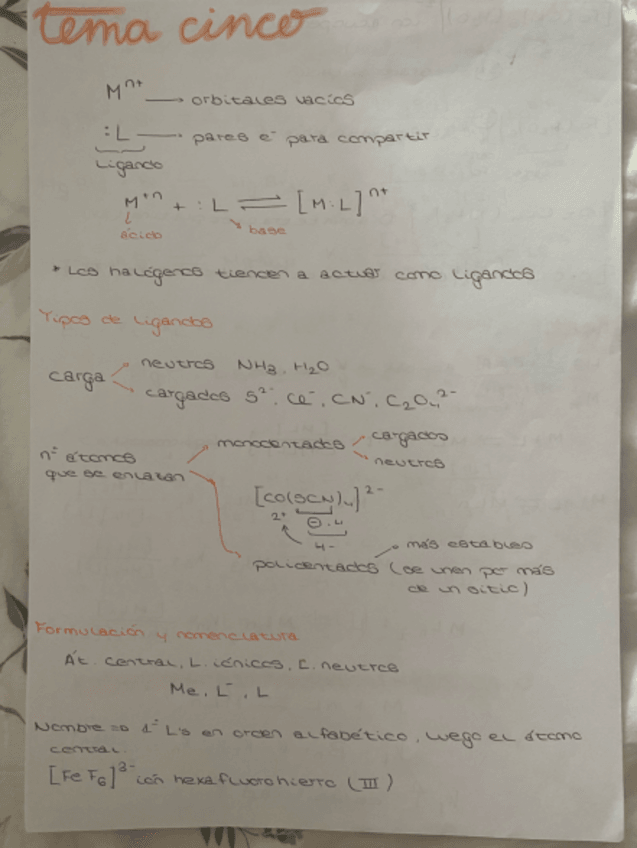 tema cinco
Mⁿ⁺ → orbitales vacíos
:L → pares e⁻ para compartir
Ligando
M⁺ⁿ + :L ⇌ [M:L]ⁿ⁺
ácido base
* Los halógenos tienden a actuar como ligandos
Tipos de ligandos
carga
neutros NH₃, H₂O
cargados S²⁻, Cl⁻, CN⁻, C₂O₄²⁻
nº átomos
que se enlazan
monodentados
cargados
neutros
[Co(SCN)₄]²⁻
2+ ⊖·4
4-
más estables
polidentados (se unen por más
de un sitio)
Formulación y nomenclatura
Át. central, L. iónicos, L. neutros
Me, L⁻, L
Nombre => 1º L's en orden alfabético, luego el átomo
central.
[FeF₆]³⁻ ión hexafluorohierro (III)